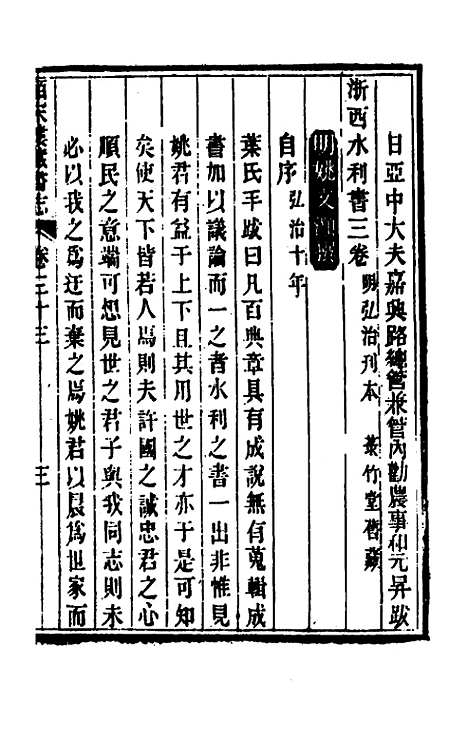 日亞中大夫嘉興路總管兼管內勸農事和元昇跋
浙西水利書三卷 明弘治刊本 菉竹堂舊藏
明姚文灝撰
自序 弘治十年
葉氏手跋曰凡百典章具有成說無有蒐輯成
書加以議論而一之者水利之書一出非惟見
姚君有益于上下且其用世之才亦于是可知
矣使天下皆若人焉則夫許國之誠忠君之心
順民之意端可想見世之君子與我同志則未
必以我之爲迂而棄之焉姚君以晨爲世家而
藏書志 卷三十三 三